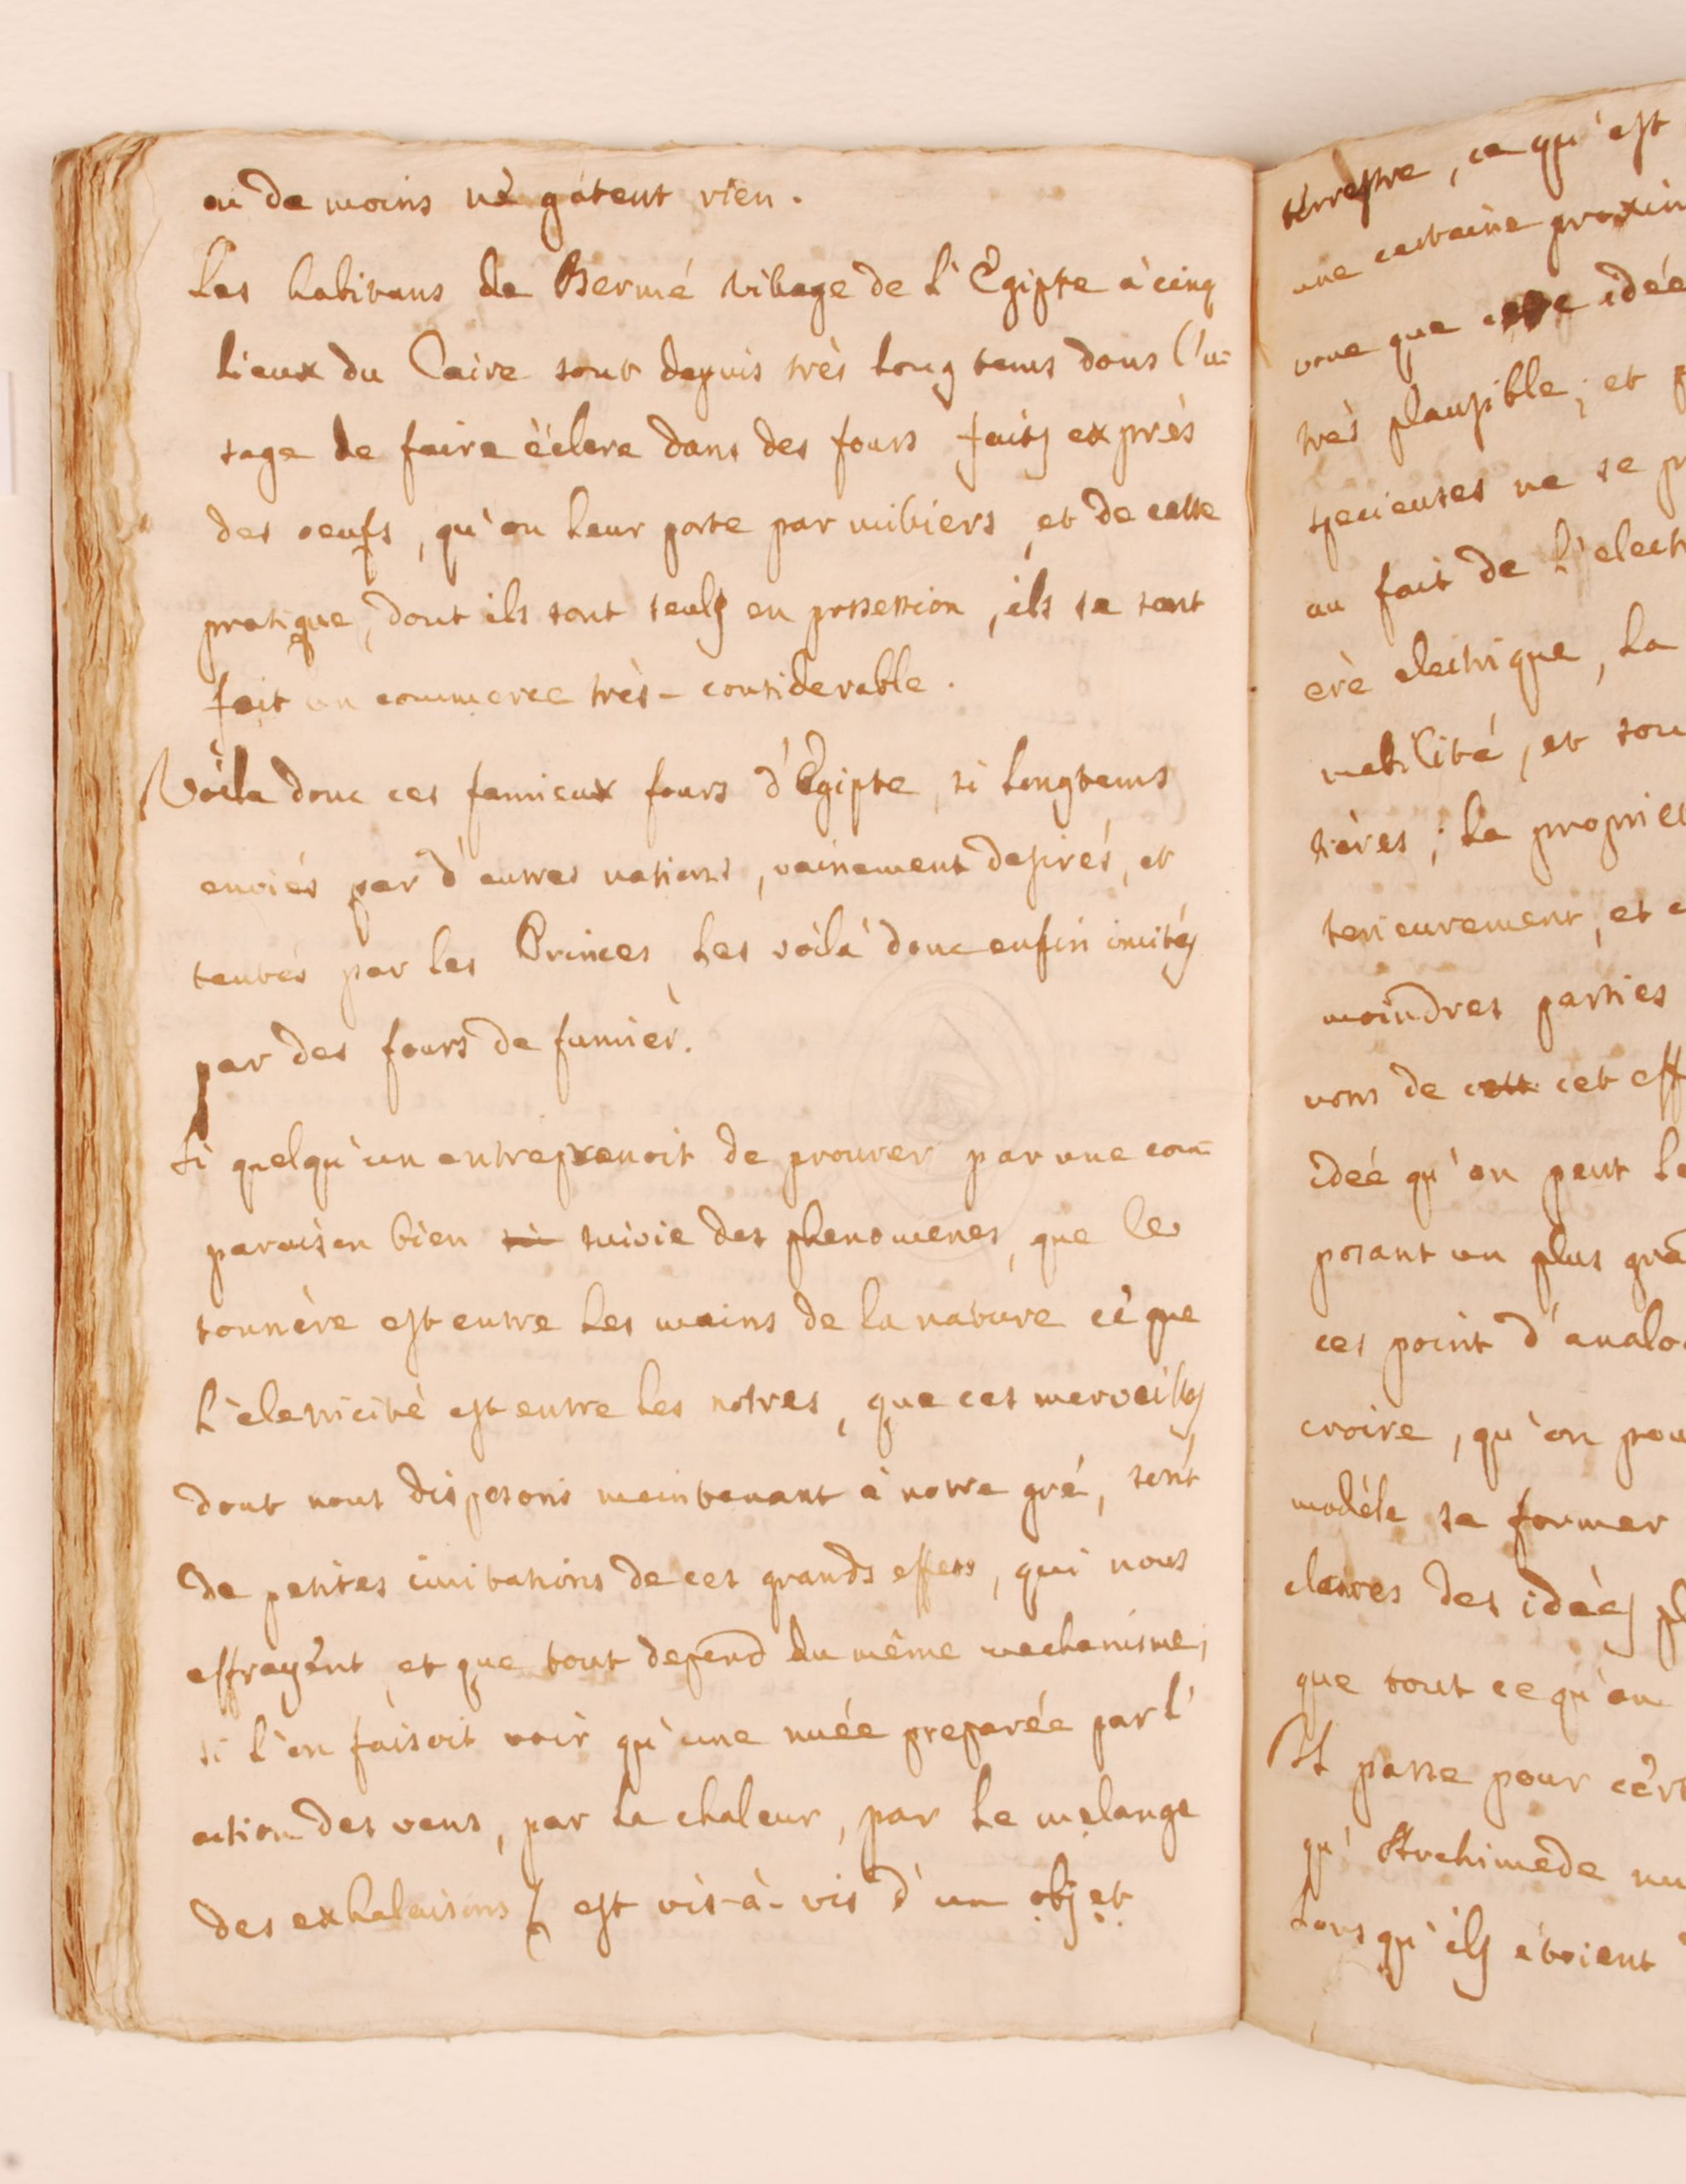 ou de moins nè gâtent rien.
Les habitans de Bermé village de l'Egipte à cinq
lieux du Caire sont depuis très long tems dans l'u-
sage de faire éclore dans des fours faits exprès
des oeufs, qu'on leur porte par milliers, et de cette
pratique, dont ils sont seuls en possession, ils se sont
fait un commerce très-considerable.
Voila donc ces fameux fours d'Egipte, si longtems
enviés par d'autres nations, vainement desirés, et
tentés par les Princes, les voilà donc enfin imités
par des fours de fumier.
Si quelqu'un entreprenoit de prouver par une com-
paraison bien si suivie des phenomenes, que le
tonnère est entre les mains de la nature cè que
l'eletricité est entre les notres, que ces merveilles
dont nous disposons maintenant à notre gré, sont
de petites imitations de ces grands effets, qui nous
effrayent et que tout depend du même mechanisme,
si l'on faisoit voir qu'une nuée preparée par l'
action des vens, par la chaleur, par le melange
des exhalaisons est vis-à-vis d'un objet
terrestre, ce qu'est
une certaine proxim
voue que cette idée
très plausible; et
specieuses ne se
au fait de l'elect
erè electrique, la
mobilité, et sou
tières; la propriet
terieurement, et
moindres parties
vons de cett cet eff
idée qu'on peut le
posant un plus gra
ces point d'analo
croire, qu'on pou
modèle se former
claires des idées pl
que tout ce qu'on
Il passe pour cèrt
qu'Archimede
Lorsqu'ils étoient